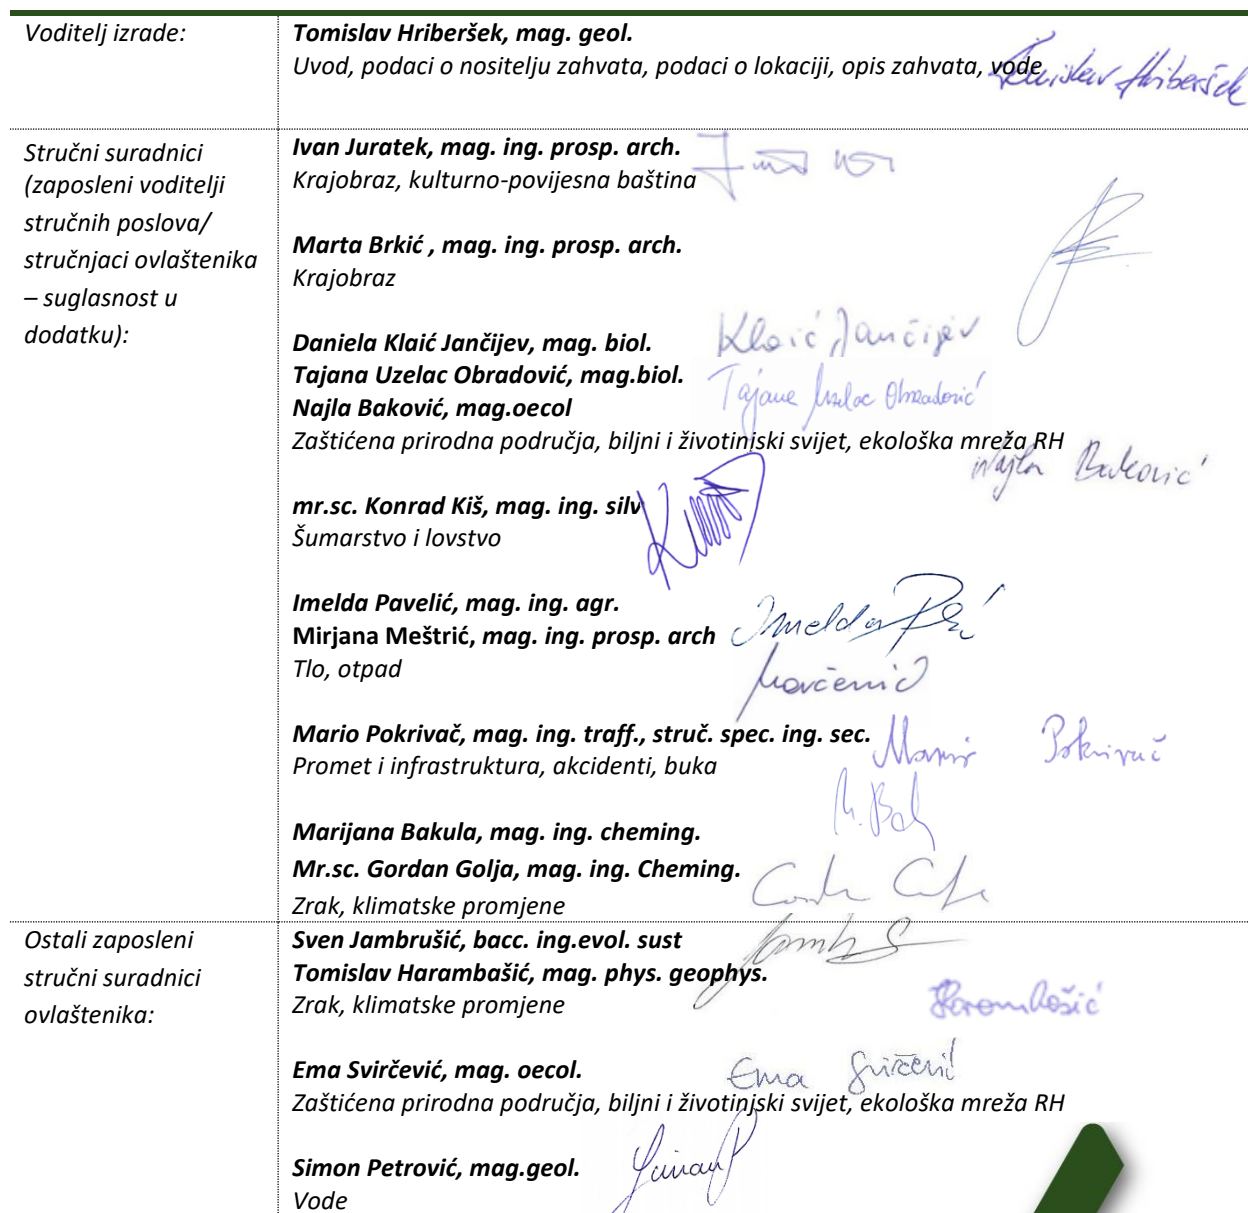 Voditelj izrade:
Tomislav Hriberšek, mag. geol.
Uvod, podaci o nositelju zahvata, podaci o lokaciji, opis zahvata, vode
Tomislav Hriberšek
Stručni suradnici
(zaposleni voditelji
stručnih poslova/
stručnjaci ovlaštenika
– suglasnost u
dodatku):
Ivan Juratek, mag. ing. prosp. arch.
Krajobraz, kulturno-povijesna baština
Marta Brkić , mag. ing. prosp. arch.
Krajobraz
Daniela Klaić Jančijev, mag. biol.
Klaić Jančijev
Tajana Uzelac Obradović, mag.biol.
Tajana Uzelac Obradović
Najla Baković, mag.oecol
Zaštićena prirodna područja, biljni i životinjski svijet, ekološka mreža RH
Najla Baković
mr.sc. Konrad Kiš, mag. ing. silv
Šumarstvo i lovstvo
Imelda Pavelić, mag. ing. agr.
Imelda
Mirjana Meštrić, mag. ing. prosp. arch
Tlo, otpad
Mario Pokrivač, mag. ing. traff., struč. spec. ing. sec.
Mario Pokrivač
Promet i infrastruktura, akcidenti, buka
Marijana Bakula, mag. ing. cheming.
Mr.sc. Gordan Golja, mag. ing. Cheming.
Zrak, klimatske promjene
Ostali zaposleni
stručni suradnici
ovlaštenika:
Sven Jambrušić, bacc. ing.evol. sust
Tomislav Harambašić, mag. phys. geophys.
Zrak, klimatske promjene
Harambašić
Ema Svirčević, mag. oecol.
Ema Svirčević
Zaštićena prirodna područja, biljni i životinjski svijet, ekološka mreža RH
Simon Petrović, mag.geol.
Vode